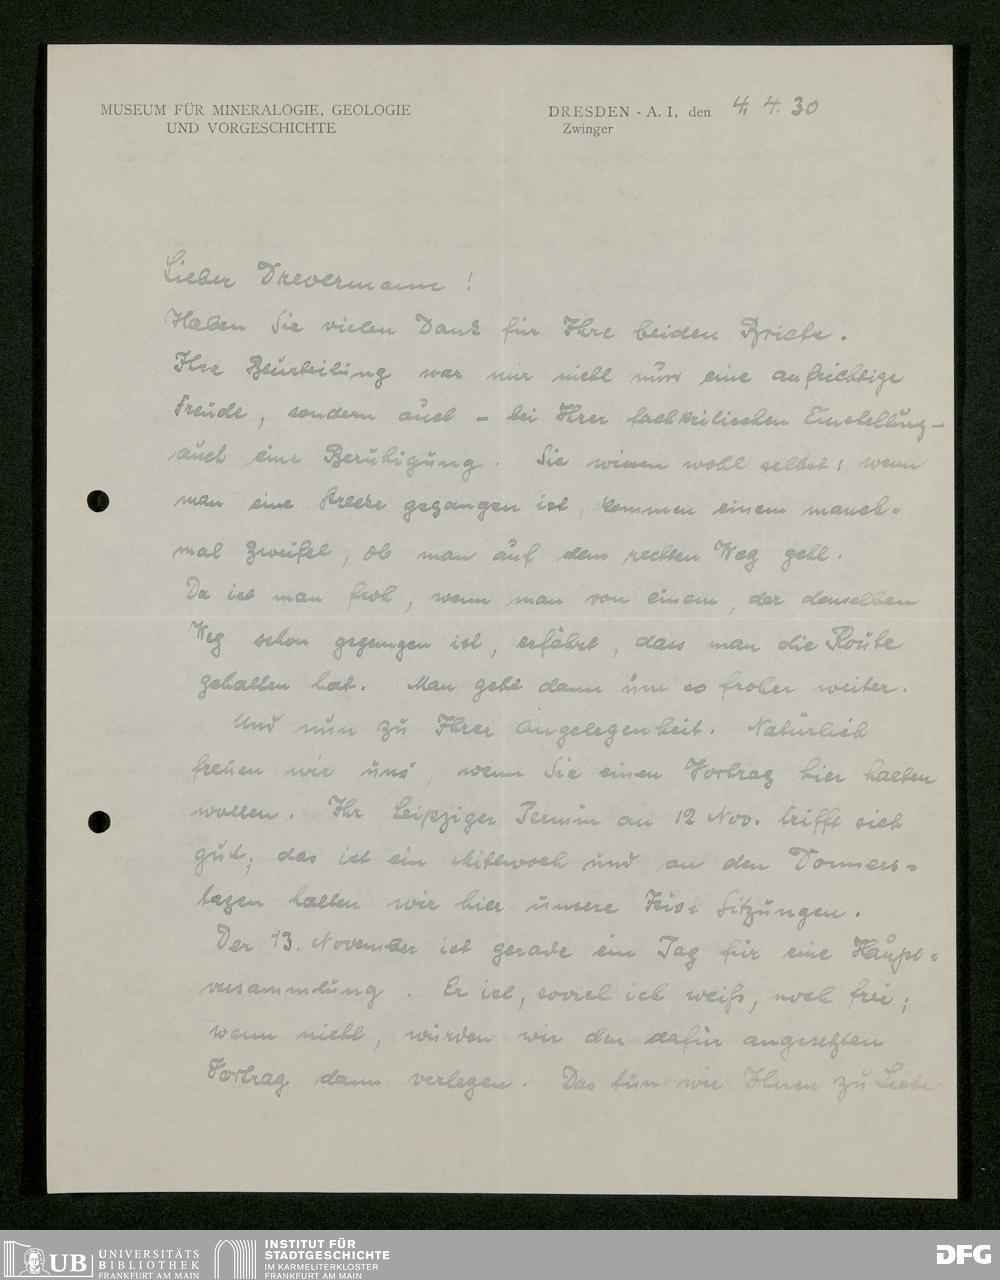 MUSEUM FÜR MINERALOGIE, GEOLOGIE
UND VORGESCHICHTE
DRESDEN - A. I, den 4. 4. 30
Zwinger
Lieber Drevermann !
Haben Sie vielen Dank für Ihre beiden Briefe.
Ihre Beurteilung war mir nicht nur eine aufrichtige
Freude, sondern auch – bei Ihrer fachkritischen Einstellung –
auch eine Beruhigung. Sie wissen wohl selbst: wenn
man eine Strecke gegangen ist, kommen einem manch-
mal Zweifel, ob man auf dem rechten Weg geht.
Da ist man froh, wenn man von einem, der denselben
Weg schon gegangen ist, erfährt, dass man die Route
gehalten hat. Man geht dann um so froher weiter.
Und nun zu Ihrer Angelegenheit. Natürlich
freuen wir uns, wenn Sie einen Vortrag hier halten
wollen. Ihr Leipziger Termin am 12 Nov. trifft sich
gut; das ist ein Mittwoch und an den Donners=
tagen halten wir hier unsere Isis= Sitzungen.
Der 13. November ist gerade ein Tag für eine Haupt=
versammlung. Er ist, soviel ich weiß, noch frei;
wenn nicht, würden wir den dafür angesetzten
Vortrag dann verlegen. Das tun wir Ihnen zu Liebe
UB UNIVERSITÄTS
BIBLIOTHEK
FRANKFURT AM MAIN
INSTITUT FÜR
STADTGESCHICHTE
IM KARMELITERKLOSTER
FRANKFURT AM MAIN
DFG